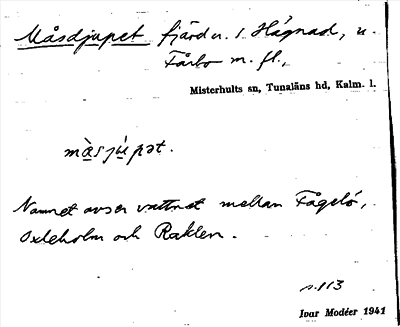 Måsdjupet fjärd u. l. Hägnad, u.
Fårbo m. fl.,
Misterhults sn, Tunaläns hd, Kalm. l.
màsjúpət.
Namnet avser vattnet mellan Fågelö,
Oxleholm och Raklen.
s. 113
Ivar Modéer 1941